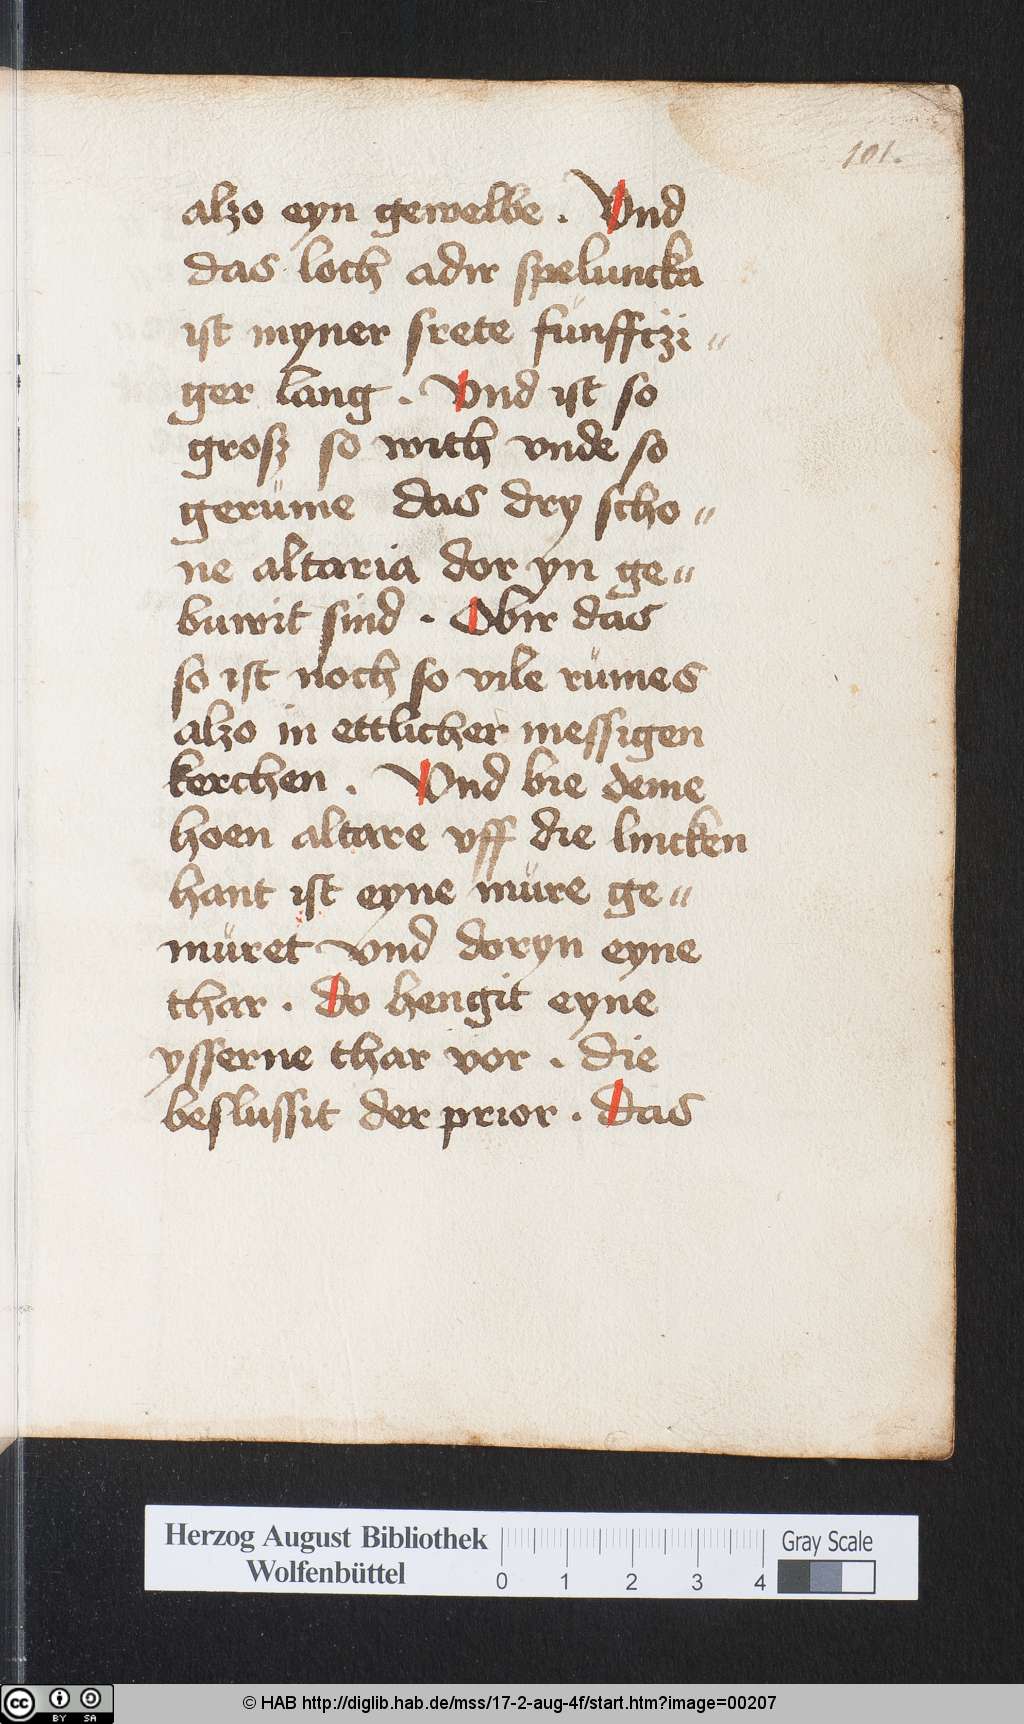 101.
alzo eyn gewelbe . Vnd
das loch adir speluncka
ist myner srete fünfftzi„
ger lang . Vnd ist so
grosz so with vnde so
gerüme das dry scho„
ne altaria dor yn ge„
buwit sind . Obir das
so ist noch so vile rümes
alzo in ettlicher messigen
kerchen . Vnd bie deme
hoen altare vff die lincken
hant ist eyne müre ge„
müret vnd doryn eyne
thar . do hengit eyne
ysserne thar vor . die
beslussit der prior . das
Herzog August Bibliothek
Wolfenbüttel
0 1 2 3 4
Gray Scale
cc BY SA
© HAB http://diglib.hab.de/mss/17-2-aug-4f/start.htm?image=00207